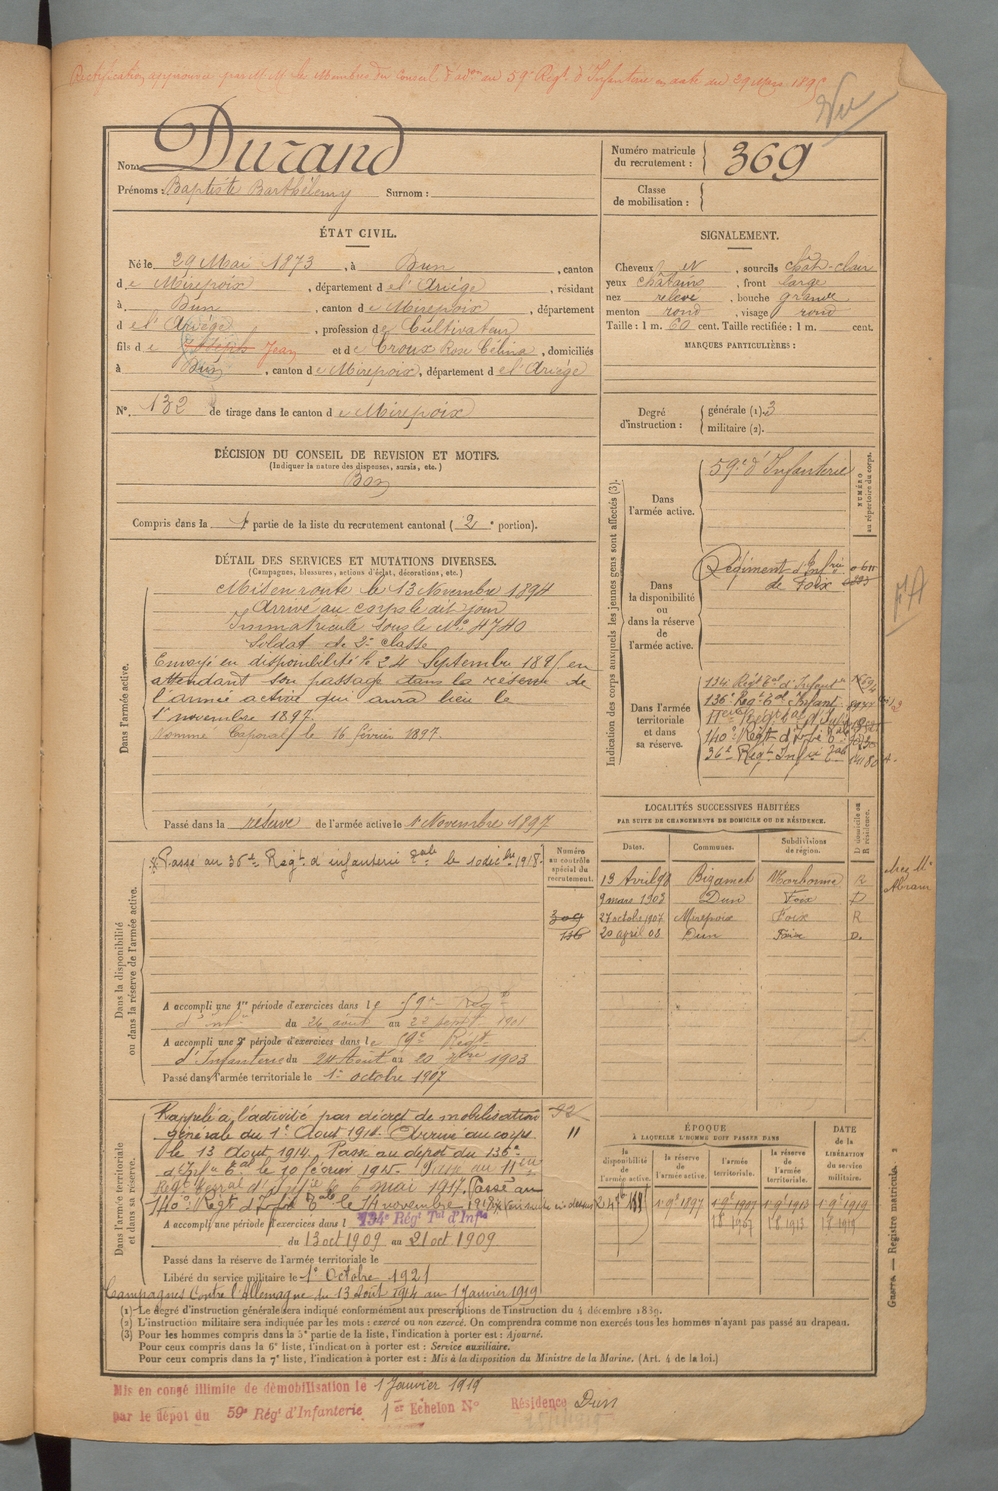 Rectification approuvée par M.M. les Membres du Conseil d'adon du 59e Régt d'Infanterie en date du 29 Mars 189
Vu
Nom Durand
Prénoms : Baptiste Barthélemy Surnom :
Numéro matricule du recrutement : 369
Classe de mobilisation :
ÉTAT CIVIL.
Né le 29 Mai 1873, à Dun, canton
de Mirepoix, département de l'Ariège, résidant
à Dun, canton de Mirepoix, département
de l'Ariège, profession de Cultivateur
fils de Joseph Jean et de Croux Rose Célina, domiciliés
à Dun, canton de Mirepoix, département de l'Ariège
N°. 132 de tirage dans le canton de Mirepoix
SIGNALEMENT.
Cheveux et, sourcils chât-clair
yeux châtains, front large
nez relevé, bouche grande
menton rond, visage rond
Taille : 1 m. 60 cent. Taille rectifiée : 1 m. cent.
MARQUES PARTICULIÈRES :
Degré d'instruction : générale (1). 3
militaire (2).
DÉCISION DU CONSEIL DE REVISION ET MOTIFS.
(Indiquer la nature des dispenses, sursis, etc.)
Bon
Compris dans la 1 partie de la liste du recrutement cantonal (2e portion).
DÉTAIL DES SERVICES ET MUTATIONS DIVERSES.
(Campagnes, blessures, actions d'éclat, décorations, etc.)
Dans l'armée active.
Mis en route le 13 Novembre 1894
Arrivé au corps le dit jour
Immatriculé sous le No 4740
Soldat de 2e classe
Envoyé en disponibilité le 24 Septembre 189 en
attendant son passage dans la réserve de
l'armée active qui aura lieu le
1er novembre 1897
Nommé Caporal le 16 février 1897.
Passé dans la réserve de l'armée active le 1 Novembre 1897
Indication des corps auxquels les jeunes gens sont affectés (3).
NUMÉRO au répertoire du corps.
Dans l'armée active.
59e d'Infanterie
Dans la disponibilité ou dans la réserve de l'armée active.
Régiment d'Infrie de Foix
Dans l'armée territoriale et dans sa réserve.
134e Régt Tal d'Infant
136e Régt Tal Infant
140e Régt d'Infie Tale
36e Régt Infie Tale
LOCALITÉS SUCCESSIVES HABITÉES
PAR SUITE DE CHANGEMENTS DE DOMICILE OU DE RÉSIDENCE.
Dates. Communes. Subdivisions de région. D domicile ou R résidence.
13 Avril 98 Bizanet Narbonne R
9 mars 1903 Dun Foix D
27 octobre 1907 Mirepoix Foix R
20 april 08 Dun Foix D.
chez Mr
Dans la disponibilité ou dans la réserve de l'armée active.
Numéro au contrôle spécial du recrutement.
Passé au 36e Regt d'infanterie tale le 10 décbre 1918.
309
136
A accompli une 1re période d'exercices dans le 59e Régt
d'Inf. du 26 août au 22 sept 1901
A accompli une 2e période d'exercices dans le 59e Régt
d'Infanterie du 24 Août au 20 7bre 1903
Passé dans l'armée territoriale le 1er octobre 1907
Dans l'armée territoriale et dans sa réserve.
Rappelé à l'activité par décret de mobilisation
générale du 1er Aout 1914. Arrivé au corps
le 13 Aout 1914. Passé au dépôt du 136e
d'Infie Tal le 10 février 1915. Passé au 11e
Régt terral d'Infie le 6 mai 1917. Passé au
140e Régt d'Infie Tale le 14 novembre 1918
A accompli une période d'exercices dans l 134e Régt Tal d'Infie
du 13 oct 1909 au 21 oct 1909
Passé dans la réserve de l'armée territoriale le
Libéré du service militaire le 1er Octobre 1921
Campagnes Contre l'Allemagne du 13 Août 1914 au 1 Janvier 1919
ÉPOQUE
À LAQUELLE L'HOMME DOIT PASSER DANS
la disponibilité de l'armée active. la réserve de l'armée active. l'armée territoriale. la réserve de l'armée territoriale.
DATE de la LIBÉRATION du service militaire.
1 9bre 1897 1 9bre 1907 1 9bre 1913 1 9bre 1919
1 8 1907 1 8 1913 1 8 1919
(1) Le degré d'instruction générale sera indiqué conformément aux prescriptions de l'instruction du 4 décembre 1889.
(2) L'instruction militaire sera indiquée par les mots : exercé ou non exercé. On comprendra comme non exercés tous les hommes n'ayant pas passé au drapeau.
(3) Pour les hommes compris dans la 5e partie de la liste, l'indication à porter est : Ajourné.
Pour ceux compris dans la 6e liste, l'indication à porter est : Service auxiliaire.
Pour ceux compris dans la 7e liste, l'indication à porter est : Mis à la disposition du Ministre de la Marine. (Art. 4 de la loi.)
Guerre — Registre matricule.
Mis en congé illimité de démobilisation le 1 Janvier 1919
par le dépôt du 59e Régt d'Infanterie 1er Echelon N° Résidence Dun